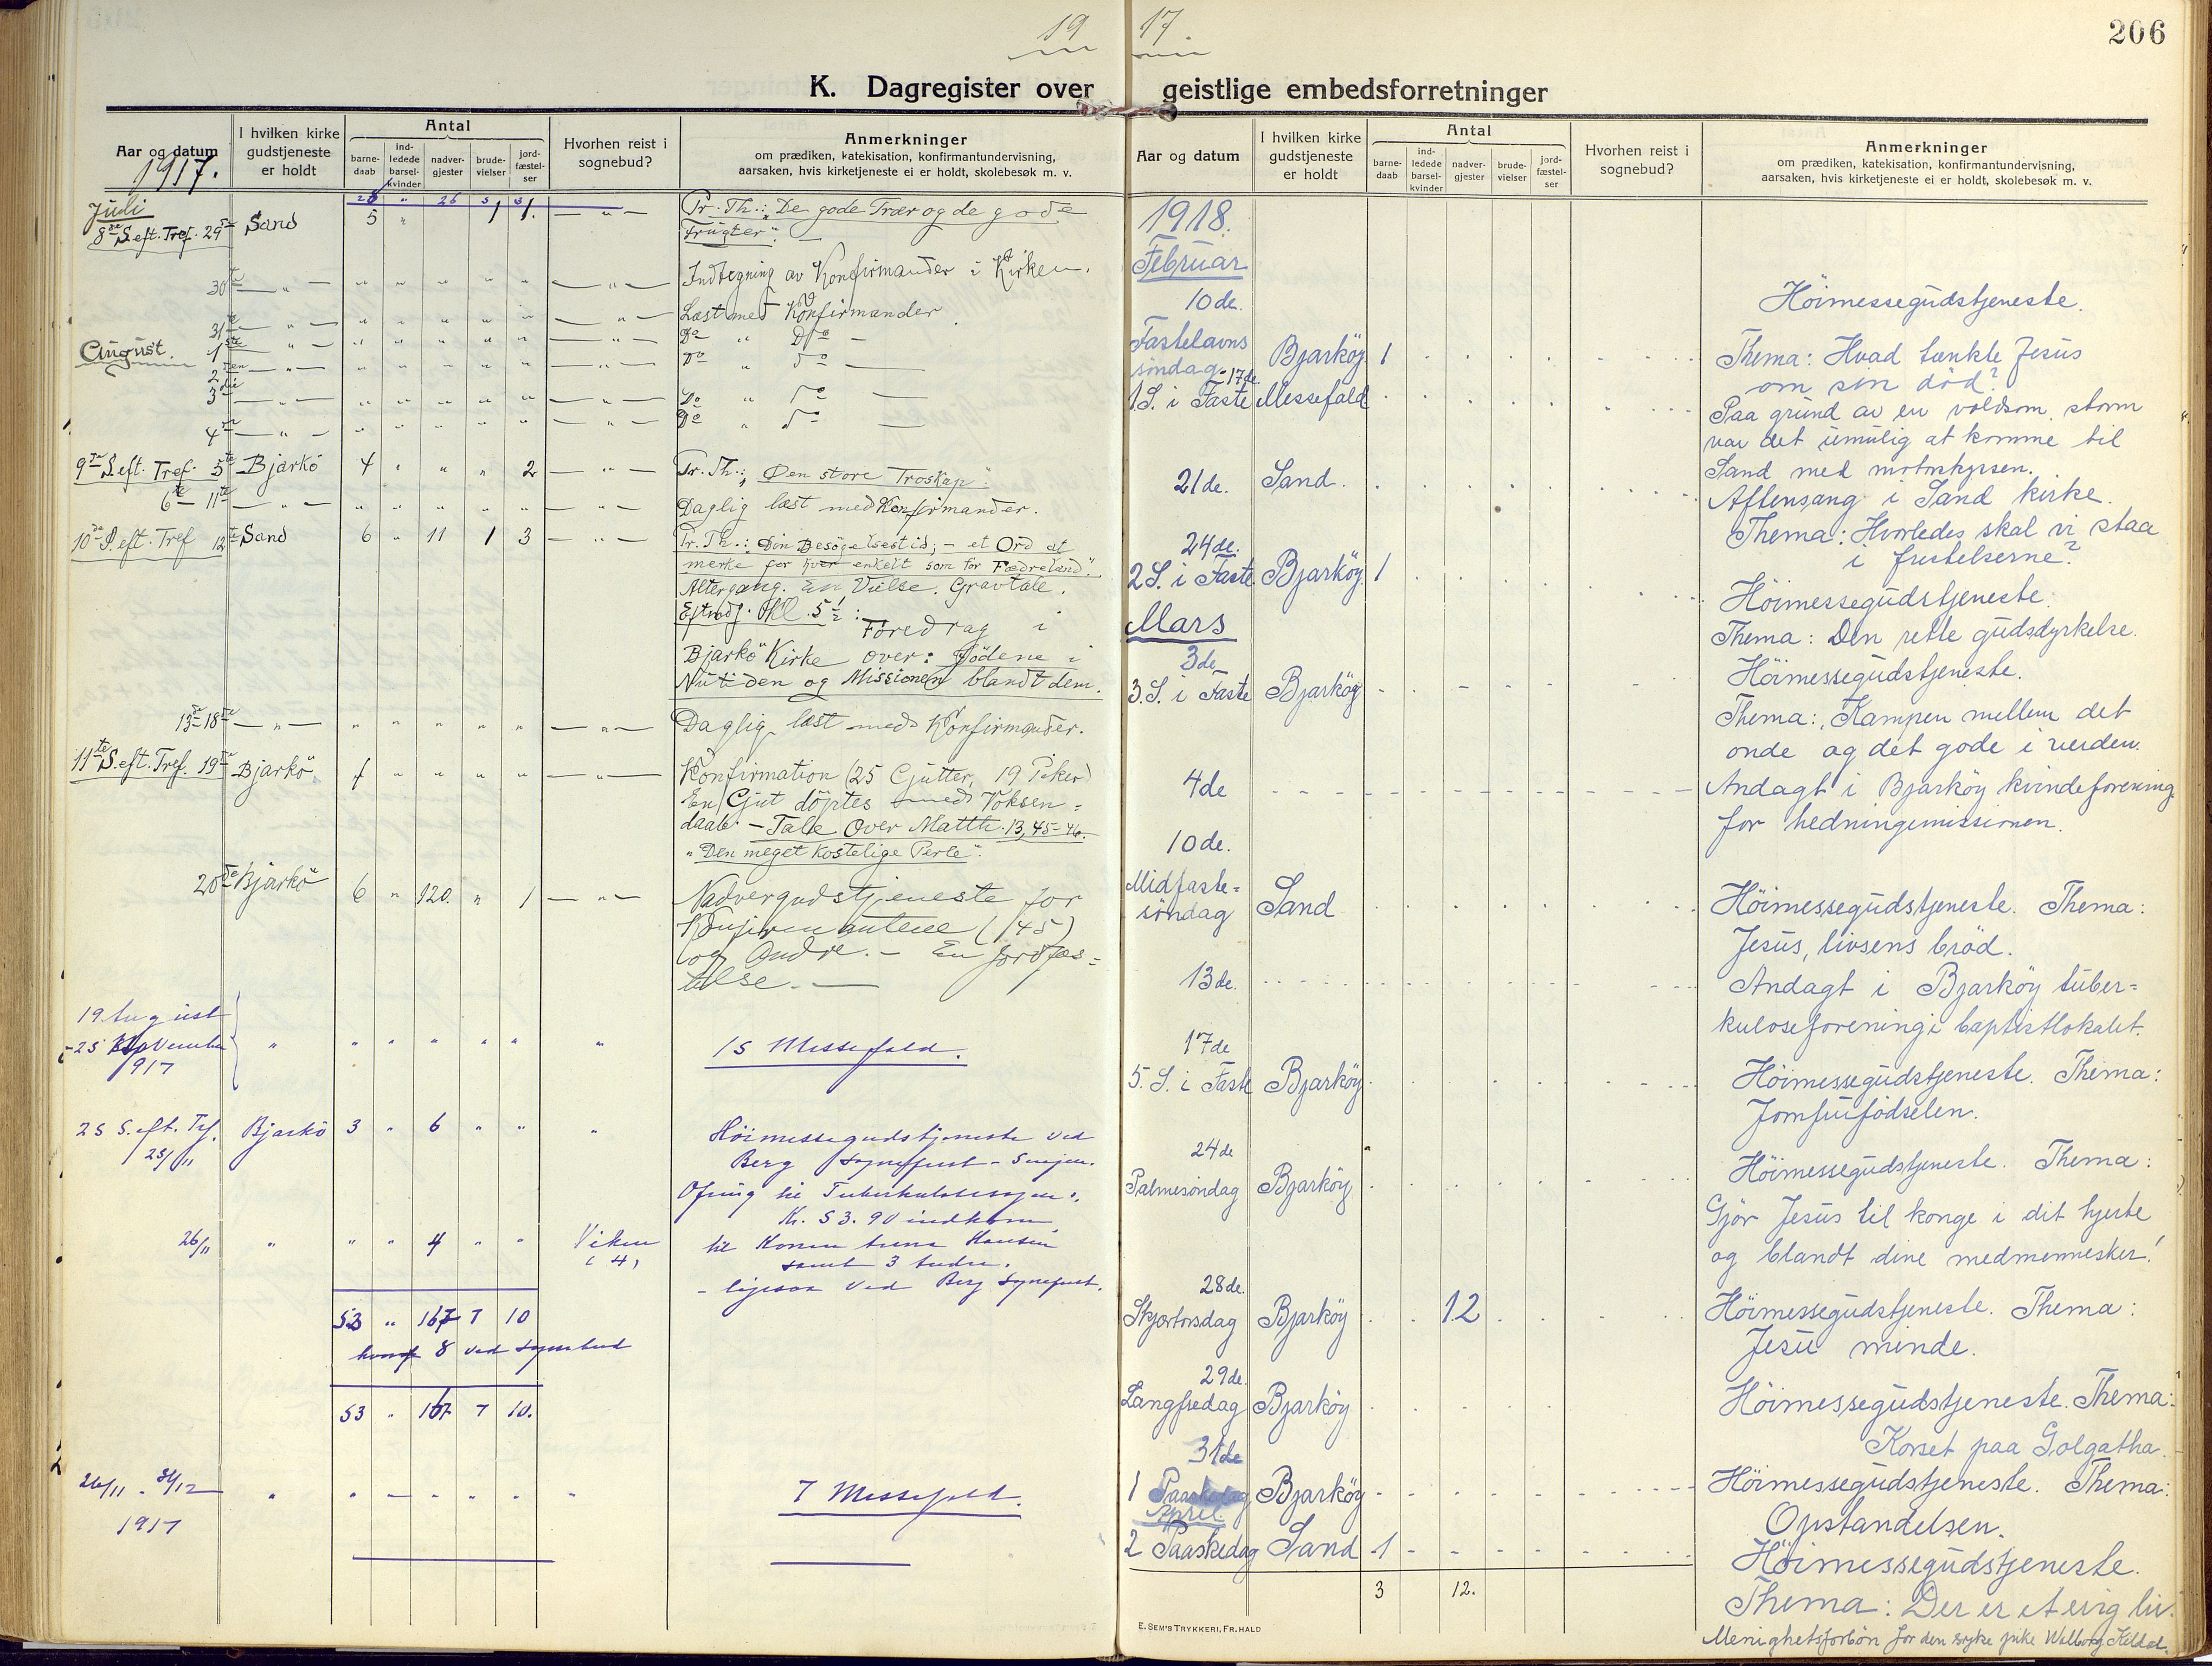 19 17.
206
K. Dagregister over geistlige embedsforretninger
Aar og datum
1917.
I hvilken kirke gudstjeneste er holdt
Antal
barne-daab
ind-ledede barsel-kvinder
nadver-gjester
brude-vielser
jord-fæstel-ser
Hvorhen reist i sognebud?
Anmerkninger
om prædiken, katekisation, konfirmantundervisning,
aarsaken, hvis kirketjeneste ei er holdt, skolebesøk m. v.
Juli
8de S. eft. Tref. 29de Sand 5 " 1 1. — " — Pr. Th.: "De gode Trær og de gode
Frugter".
30te — " — " " " " " — " — Indtegning av Konfirmander i Kirken.
31te — " — " " " " " — " — Læst med Konfirmander
August. 1ste — " — " " " " " — " — Do " Do —
2den — " — " " " " " — " — Do " Do —
3die — " — " " " " " — " — Do " Do —
4de — " — " " " " " — " — Do " Do —
9de S. eft. Tref. 5te Bjarkö 4 " " " 2 — " — Pr. Th.: "Den store Troskap".
6te – 11te — " — " " " " " — " — Daglig læst med Konfirmander.
10de S. eft. Tref 12te Sand 6 " 11 1 3 — " — Pr. Th.: Din Besögelsestid; – et Ord at
merke for hver enkelt som for Fædreland".
Altergang. En Vielse. Gravtale.
Eftmdg. Kl. 5 1/2: Foredrag i
Bjarkö Kirke over: Jödene i
Nutiden og Missionen blandt dem.
13de–18de — " — " " " " " — " — Daglig læst med Konfirmander.
11te S. eft. Tref. 19de Bjarkö 1 " " " " — " — Konfirmation (25 Gjutter, 19 Piker)
En Gjut döptes med Voksen-
daab. – Tale Over Matth. 13, 45-46.
"Den meget Kostelige Perle".
20de Bjarkö 6 " 120. " 1 — " — Nadvergudstjeneste for
Konfirmantene (45)
og Andre. – En Jordfæs-
telse. —
19 August
- 25 November " " " " " " " 15 Messefald.
1917
25 S. eft. Trf. Bjarkö 3 " 6 " " " Höimessegudstjeneste ved
25/11 Berg sogneprest – Senjen.
Ofring til Tuberkulosesagen.
Kr. 53.90 indkom
26/11 " " " 4 " " Viken til Konen Anna Hansen
(4) samt 3 Andre.
– ligesaa ved Berg Sognepest.
53 " 167 7 10
hvoraf 8 ved sognebud
53 " 167 7 10.
26/11 - 31/12 " " — " " " " 7 Messefald.
1917
Aar og datum
I hvilken kirke gudstjeneste er holdt
Antal
barne-daab
ind-ledede barsel-kvinder
nadver-gjester
brude-vielser
jord-fæstel-ser
Hvorhen reist i sognebud?
Anmerkninger
om prædiken, katekisation, konfirmantundervisning,
aarsaken, hvis kirketjeneste ei er holdt, skolebesøk m. v.
1918.
Februar
10de. Höimessegudstjeneste.
Fastelavns
söndag Bjarköy 1 Thema: Hvad tænkte Jesus
om sin död?
17de
1 S. i Faste Messefald Paa grund av en voldsom storm
var det umulig at komme til
Sand med motorskyssen.
21de. Sand. Aftensang i Sand kirke.
Thema: Hvorledes skal vi staa
i fristelserne?
24de.
2 S. i Faste Bjarköy 1 Höimessegudstjeneste.
Thema: Den rette gudsdyrkelse.
Mars
3de
3. S. i Faste Bjarköy Höimessegudstjeneste.
Thema: Kampen mellem det
onde og det gode i verden.
4de Andagt i Bjarköy kvindeforening
for hedningemissionen.
10de.
Midfaste-
söndag Sand Höimessegudstjeneste. Thema:
Jesus, livsens bröd.
13de. Andagt i Bjarköy tuber-
kuloseforening i baptistlokalet.
17de
5. S. i Faste Bjarköy Höimessegudstjeneste. Thema:
Jomfrufödselen.
24de
Palmesöndag Bjarköy Höimessegudstjeneste. Thema:
Gjör Jesus til konge i dit hjerte
og blandt dine medmennesker!
28de.
Skjærtorsdag Bjarköy 12 Höimessegudstjeneste. Thema:
Jesu minde.
29de.
Langfredag Bjarköy Höimessegudstjeneste. Thema:
Korset paa Golgatha.
31de
1 Paaskedag Bjarköy Höimessegudstjeneste. Thema:
Opstandelsen.
April.
2 Paaskedag Sand 1 Höimessegudstjeneste.
3 12. Thema: Der er et evig liv.
Menighetsforbön for den syke pike Walborg Kildal.
E. SEM'S TRYKKERI, FR.HALD